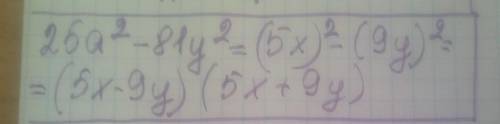 25a² - 81y² = (5x)² - (9y)² =
= (5x - 9y) (5x + 9y)